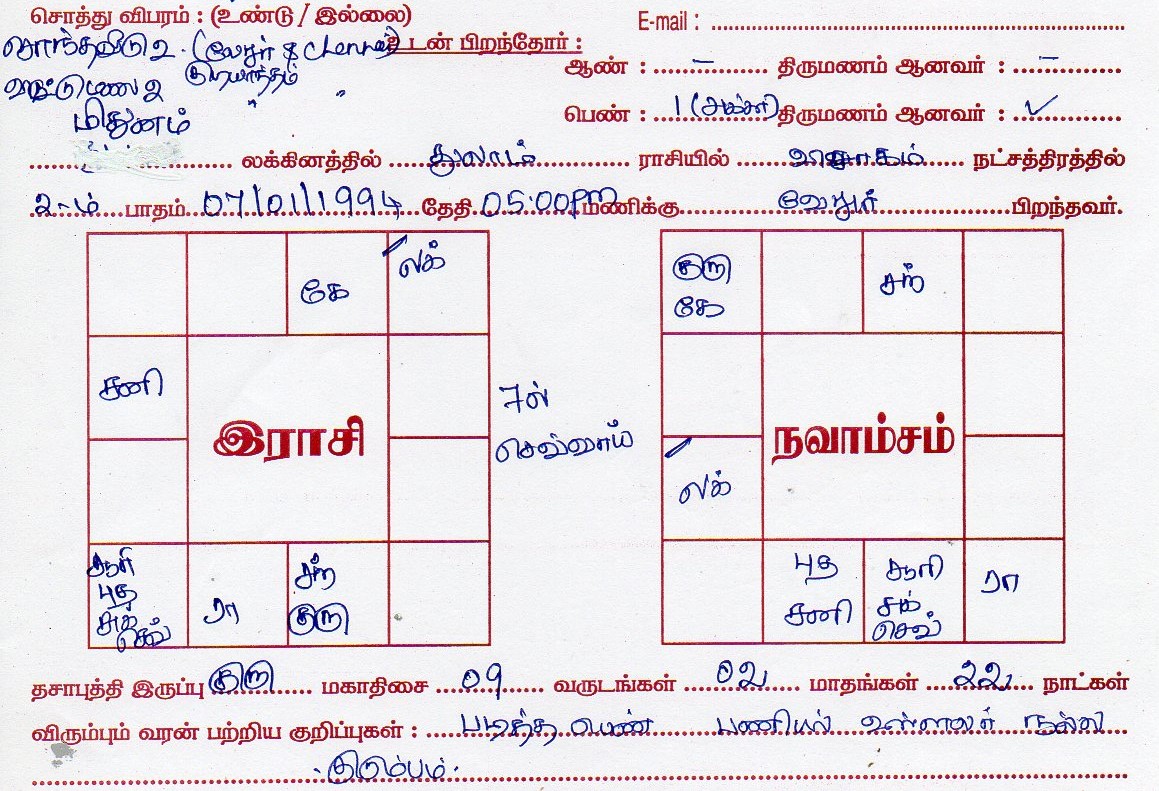 சொத்து விபரம் : (உண்டு / இல்லை)
E-mail :
சொந்தவீடு உ. (வேலூர் & Chennai)
உடன் பிறந்தோர் :
குடியாத்தம்
ஆண் : – திருமணம் ஆனவர் : –
வீட்டுமனை உ " "
பெண் : 1 (அக்கா) திருமணம் ஆனவர் : ✓
மிதுனம்
லக்கினத்தில் துலாம் ராசியில் விசாகம் நட்சத்திரத்தில்
2-ம் பாதம் 07/01/1994 தேதி 05:00PM மணிக்கு வேலூர் பிறந்தவர்.
கே லக்
சனி
இராசி
சூரி புத சுக் செவ்
ரா
சந் குரு
7ல் செவ்வாய்
குரு கே
சந்
லக்
நவாம்சம்
புத சனி
சூரி சுக் செவ்
ரா
தசாபுத்தி இருப்பு குரு மகாதிசை 09 வருடங்கள் 02 மாதங்கள் 22 நாட்கள்
விரும்பும் வரன் பற்றிய குறிப்புகள் : படித்த பெண் பணியில் உள்ளவர் நல்ல
குடும்பம்.